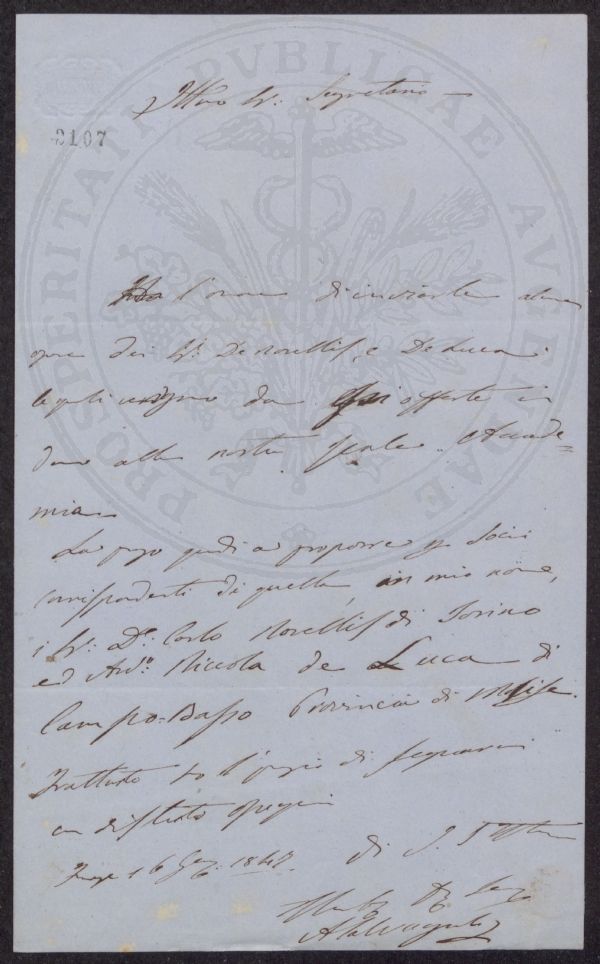 PROSPERITATI PVBLICAE AVGENDAE
2107
Illmo Sr. Segretario
Ho l'onore di inviarle alcune
opere dei Sri. De Novellis e De Luca
le quali vengono da essi offerte in
dono alla nostra Reale Accade=
mia
La prego quindi a proporre p. Socii
corrispondenti di quella, in mio nome,
i Sri. Dr. Carlo Novellis di Torino
ed Avvo. Niccola de Luca di
Campo-Basso Provincia di Molise.
Frattanto ho il pregio di segnarmi
con distinto ossequio
di S. S. Illma
16 1847.